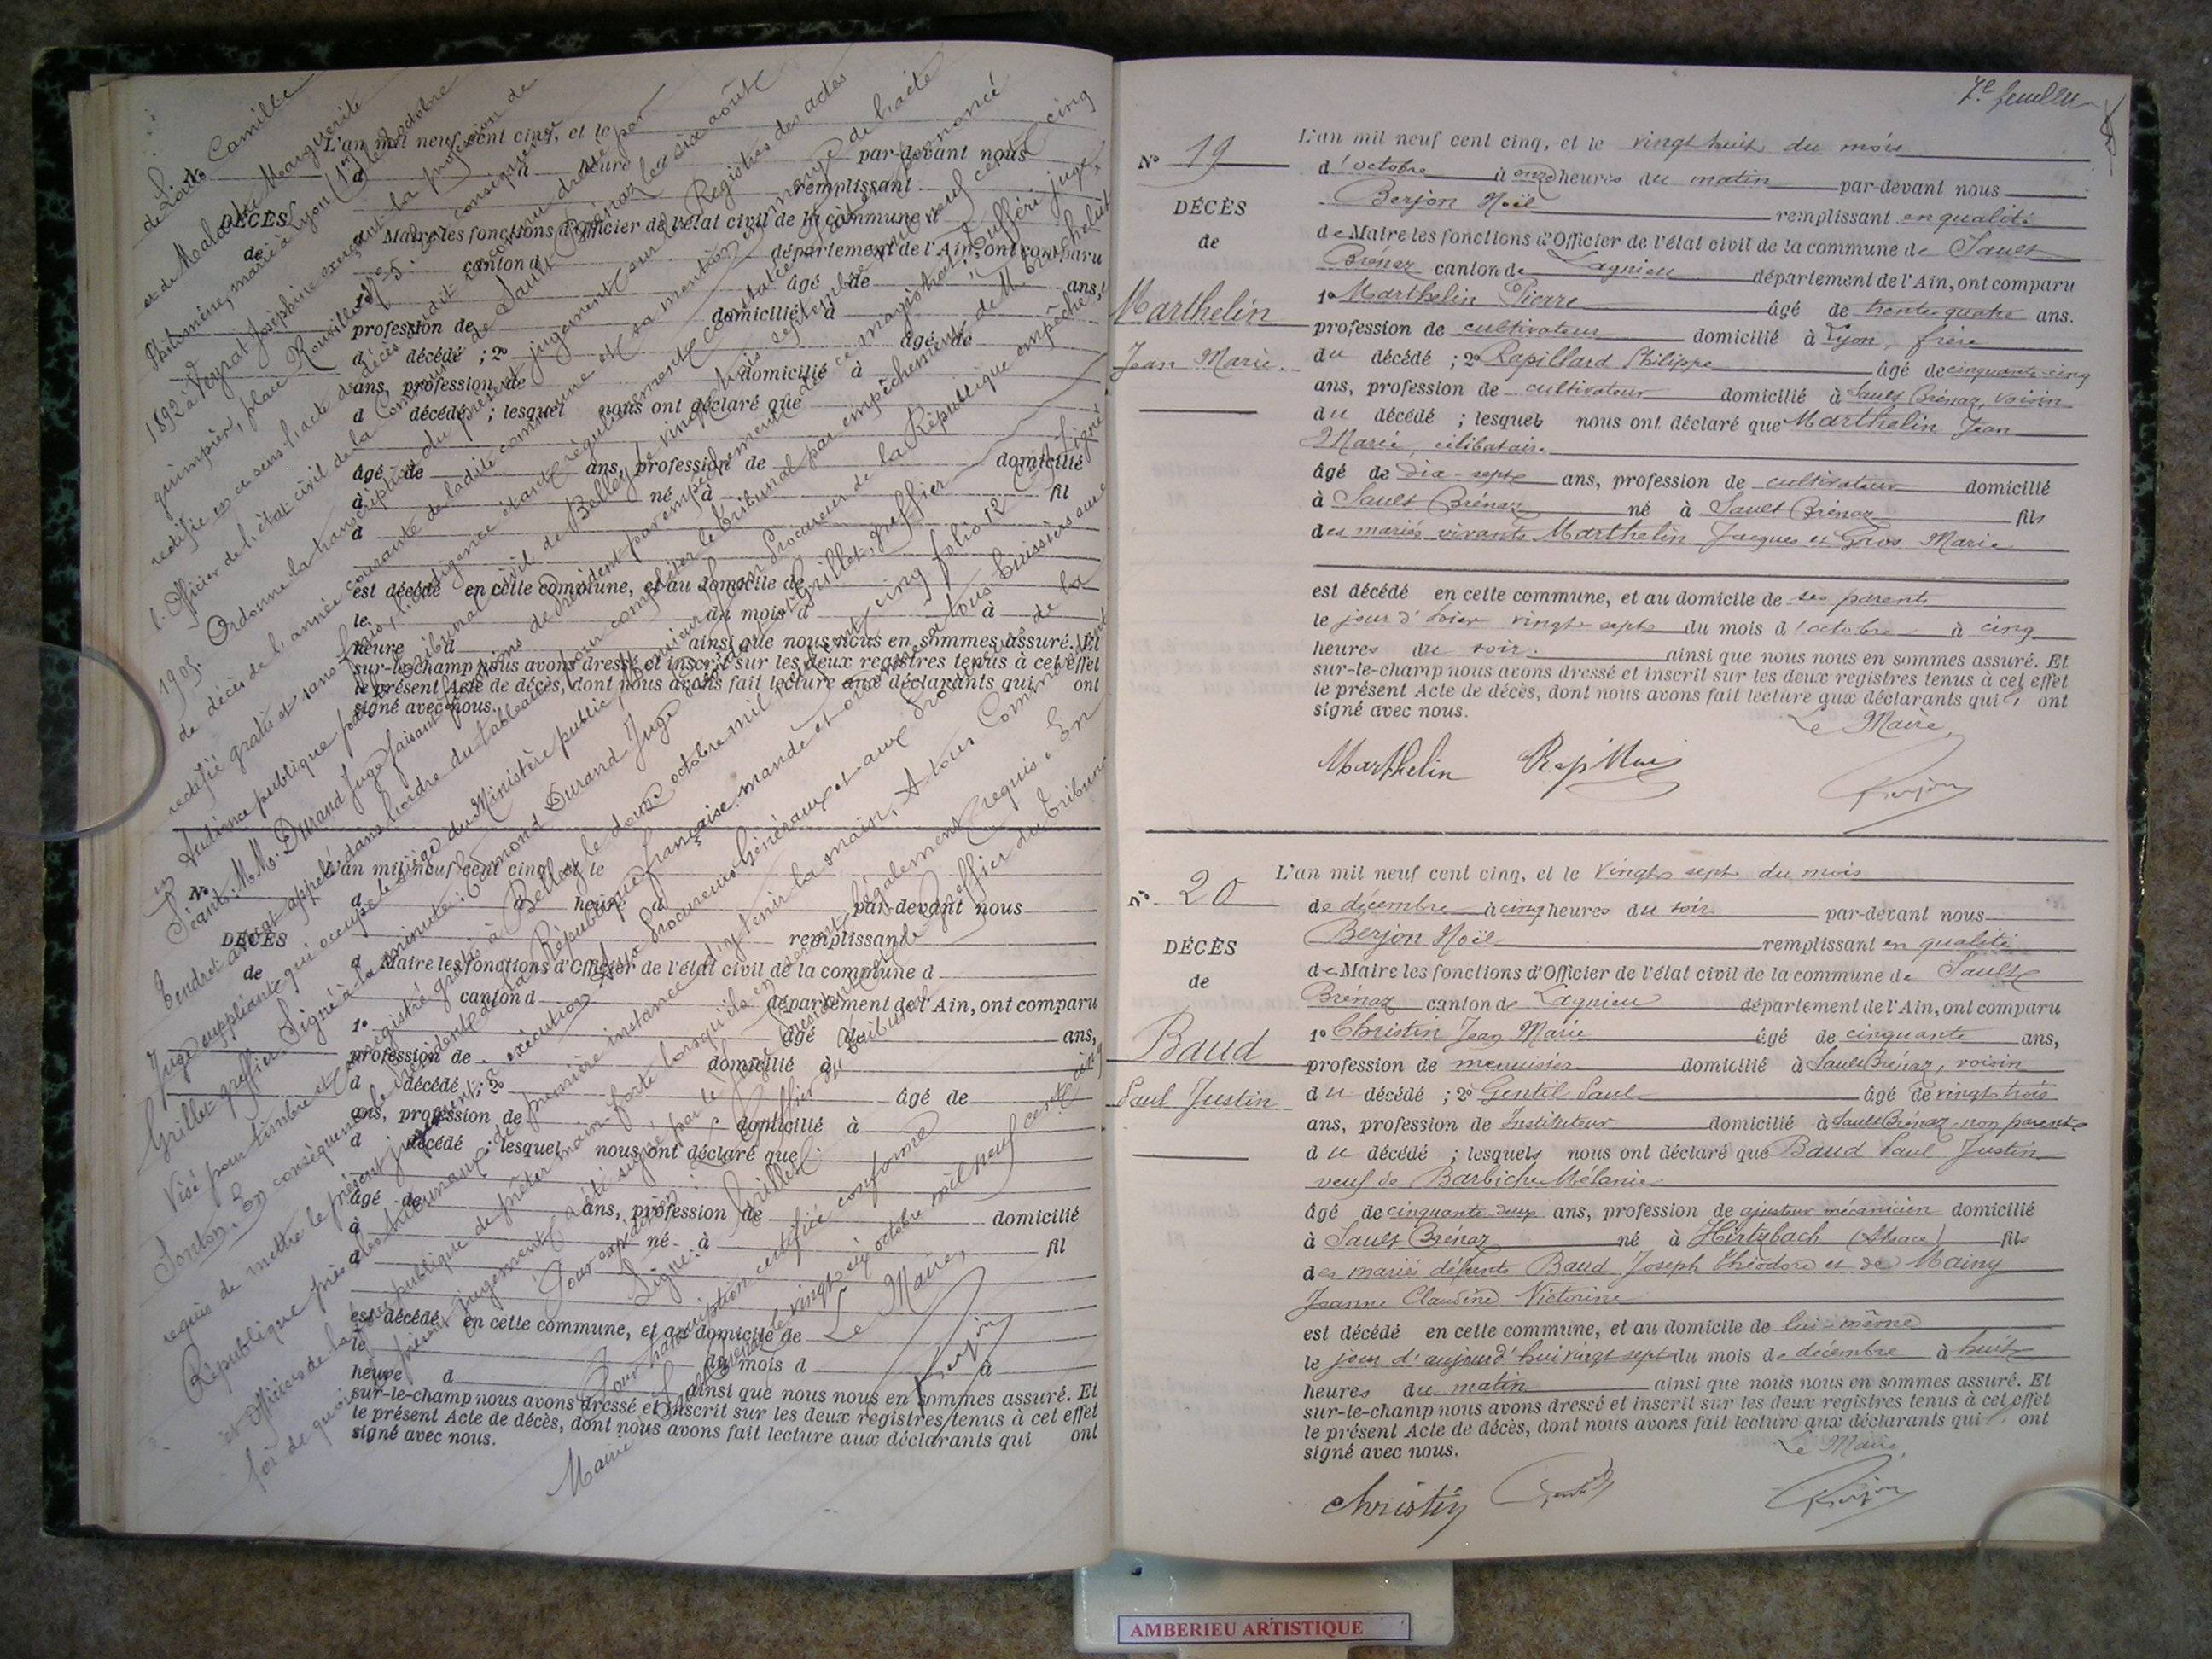 de Louis Camille
et de Malachie Marguerite
Philomène, marié à Lyon (1er) le octobre
1892 à Veyrat Joséphine exerçant la profession de
guimpier, place Rouville No 5. En conséquence
rectifie en ce sens l'acte de décès susdit reconnu dressé par
l'Officier de l'état civil de la Commune de Sault Brénaz le six août
1905. Ordonne la transcription du présent jugement sur les Registres des actes
de décès de l'année courante de ladite commune et sa mention en marge de l'acte
rectifié gratis et sans frais, l'indigence étant régulièrement constatée
en Audience publique par le Tribunal civil de Belley le vingt trois septembre mil neuf cent cinq
Séants: M.M. Durand Juge faisant fonctions de président par empêchement de ce magistrat, juge,
Tendret avocat appelé dans l'ordre du tableau pour compléter le tribunal par empêchement de M.
Juge suppléant qui occupe le siège du Ministère public, Monsieur le Procureur de la République empêché
Grillet greffier. Signé à la minute: Edmond Durand Juge et Grillet, greffier
Visé pour timbre et enregistré gratis à Belley le douze octobre mil neuf cent cinq folio 12
Sonton. En conséquence le Président de la République française mande et ordonne à tous huissiers sur ce
requis de mettre le présent jugement à exécution Aux Procureurs Généraux et aux Procureurs de la
République près les tribunaux de première instance d'y tenir la main, A tous Commandants
et officiers de la force publique de prêter main forte lorsqu'ils en seront légalement requis. En
foi de quoi le présent jugement a été signé par le Juge Président et le Greffier du tribunal
Pour expédition: Le Greffier du Tribunal
Signé: Grillet
Pour transcription certifiée conforme
Mairie de Sault Brénaz le vingt six octobre mil neuf cent cinq
Le Maire,
Berjon
L'an mil neuf cent cinq, et le
d à heure par-devant nous
remplissant
DÉCÈS
d Maire les fonctions d'Officier de l'état civil de la commune d
de
canton d département de l'Ain, ont comparu
1° âgé de ans,
profession de domicilié à
d décédé ; 2° âgé de
ans, profession de domicilié à
d décédé ; lesquel nous ont déclaré que
âgé de ans, profession de domicilié
à né à fil
d
est décédé en cette commune, et au domicile de
le du mois d à
heure d ainsi que nous nous en sommes assuré. Et
sur-le-champ nous avons dressé et inscrit sur les deux registres tenus à cet effet
le présent Acte de décès, dont nous avons fait lecture aux déclarants qui ont
signé avec nous.
L'an mil neuf cent cinq, et le
No
d à heure d par-devant nous
DÉCÈS
remplissant
de
d Maire les fonctions d'Officier de l'état civil de la commune d
canton d département de l'Ain, ont comparu
1° âgé de ans,
profession de domicilié à
d décédé ; 2° âgé de
ans, profession de domicilié à
d décédé ; lesquel nous ont déclaré que
âgé de ans, profession de domicilié
à né à fil
d
est décédé en cette commune, et au domicile de
le du mois d à
heure d ainsi que nous nous en sommes assuré. Et
sur-le-champ nous avons dressé et inscrit sur les deux registres tenus à cet effet
le présent Acte de décès, dont nous avons fait lecture aux déclarants qui ont
signé avec nous.
7e feuillet
No 19
DÉCÈS
de
Marthelin
Jean Marie.
L'an mil neuf cent cinq, et le vingt huit du mois
d'octobre à onze heures du matin par-devant nous
Berjon Noël remplissant en qualité
de Maire les fonctions d'Officier de l'état civil de la commune de Sault
Brénaz canton de Lagnieu département de l'Ain, ont comparu
1° Marthelin Pierre âgé de trente quatre ans.
profession de cultivateur domicilié à Lyon, frère
du décédé ; 2° Rapillard Philippe âgé de cinquante cinq
ans, profession de cultivateur domicilié à Sault Brénaz, voisin
du décédé ; lesquels nous ont déclaré que Marthelin Jean
Marie, célibataire
âgé de dix-sept ans, profession de cultivateur domicilié
à Sault Brénaz né à Sault Brénaz fils
des mariés vivants Marthelin Jacques et Gros Marie
est décédé en cette commune, et au domicile de ses parents
le jour d'hier vingt sept du mois d'octobre à cinq
heures du soir. ainsi que nous nous en sommes assuré. Et
sur-le-champ nous avons dressé et inscrit sur les deux registres tenus à cet effet
le présent Acte de décès, dont nous avons fait lecture aux déclarants qui ont
signé avec nous.
Le Maire,
Marthelin Berjon
No 20
DÉCÈS
de
Baud
Paul Justin
L'an mil neuf cent cinq, et le vingt sept du mois
de décembre à cinq heures du soir par-devant nous
Berjon Noël remplissant en qualité
de Maire les fonctions d'Officier de l'état civil de la commune de Sault
Brénaz canton de Lagnieu département de l'Ain, ont comparu
1° Christin Jean Marie âgé de cinquante ans,
profession de menuisier domicilié à Sault Brénaz, voisin
du décédé ; 2° Gentil Paul âgé de vingt trois
ans, profession de Instituteur domicilié à Sault Brénaz, non parent
du décédé ; lesquels nous ont déclaré que Baud Paul Justin
veuf de Barbiche Mélanie
âgé de cinquante deux ans, profession de ajusteur mécanicien domicilié
à Sault Brénaz né à Hirtzbach (Alsace) fils
des mariés défunts Baud Joseph Théodore et de Mainy
Jeanne Claudine Victorine
est décédé en cette commune, et au domicile de lui-même
le jour d'aujourd'hui vingt sept du mois de décembre à huit
heures du matin ainsi que nous nous en sommes assuré. Et
sur-le-champ nous avons dressé et inscrit sur les deux registres tenus à cet effet
le présent Acte de décès, dont nous avons fait lecture aux déclarants qui ont
signé avec nous.
Le Maire,
Christin Gentil Berjon
AMBERIEU ARTISTIQUE